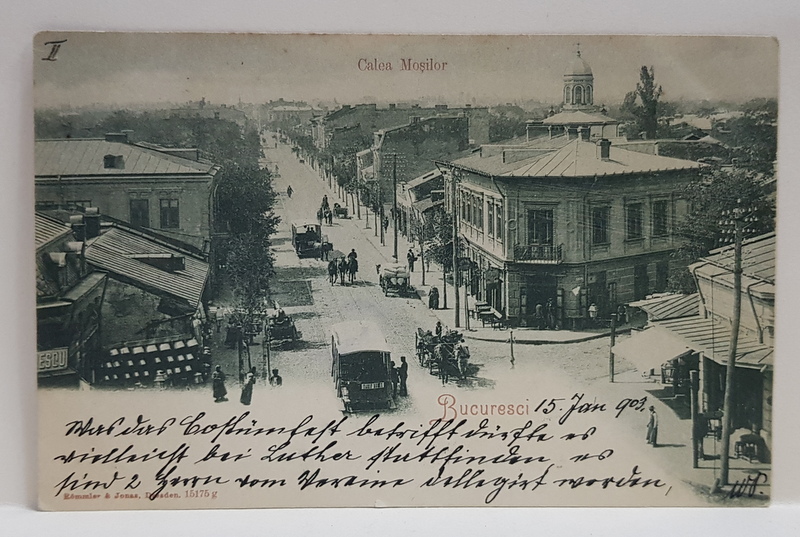 II
Calea Moşilor
ESCU
Bucuresci 15. Jan 903.
Was das Costümfest betrifft dürfte es
vielleicht bei Luther stattfinden, es
sind 2 Herrn vom Vereine dellegirt worden,
Römmler & Jonas, Dresden. 15175 g